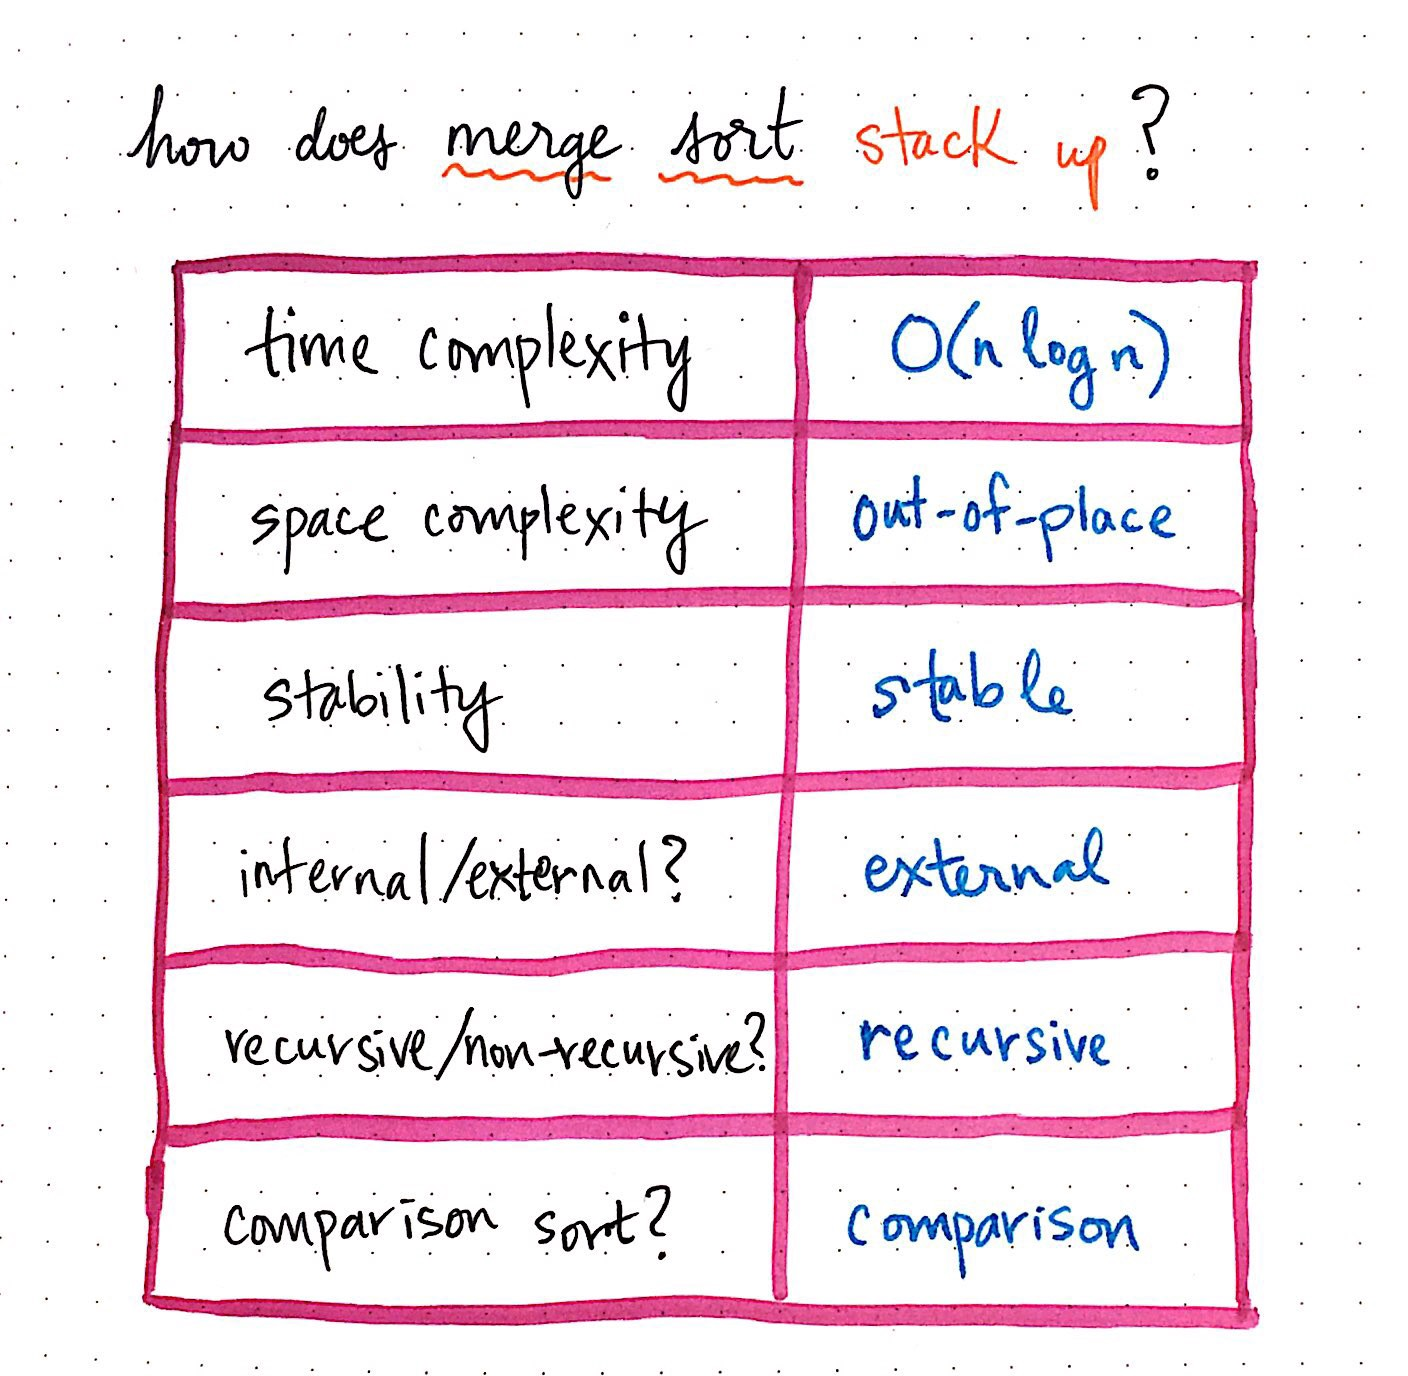 how does merge sort stack up?
time complexity
O(n log n)
space complexity
out-of-place
stability
stable
internal/external?
external
recursive/non-recursive?
recursive
comparison sort?
comparison